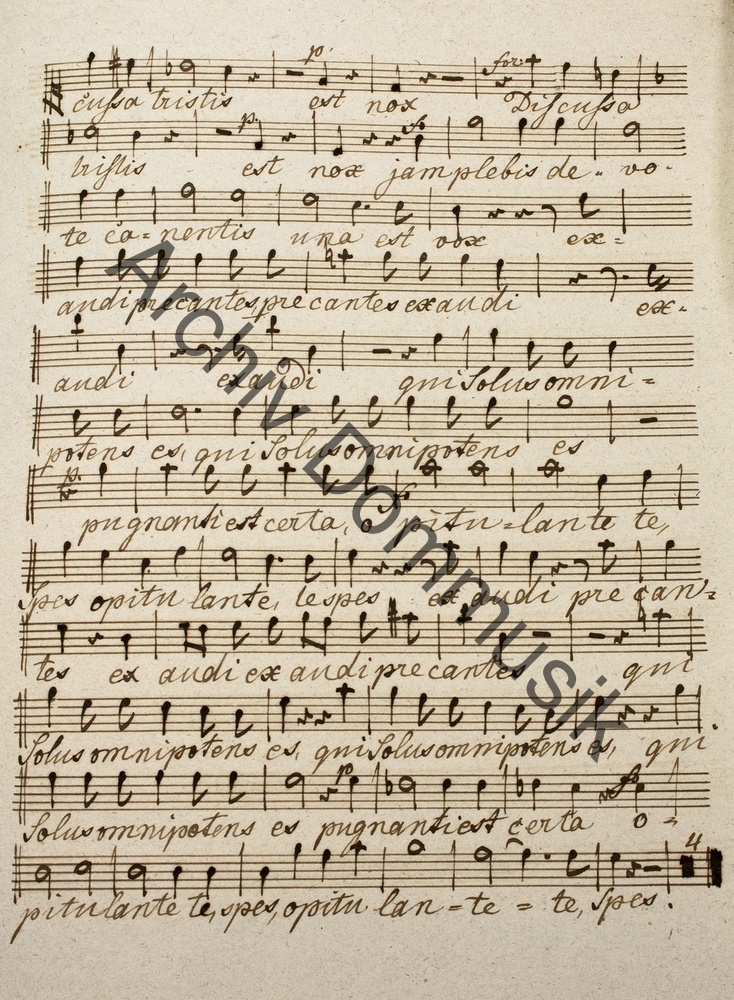 p. for:
cussa tristis est nox Discussa
p. fo
tristis est nox jam plebis de = vo =
te ca = nentis una est vox ex =
audi precantes precantes exaudi ex =
audi exaudi qui Solus omni =
potens es, qui Solus omnipotens es
p. fo
pugnanti est certa, o pitu = lante te,
Spes opitu lante, te spes exaudi pre can =
tes ex audi ex audi precantes qui
Solus omnipotens es, qui Solus omnipotens es, qui
p fo
Solus omnipotens es pugnanti est certa o =
4
pitulante te, spes, opitu lan = te = te, Spes.
Archiv Dommusik